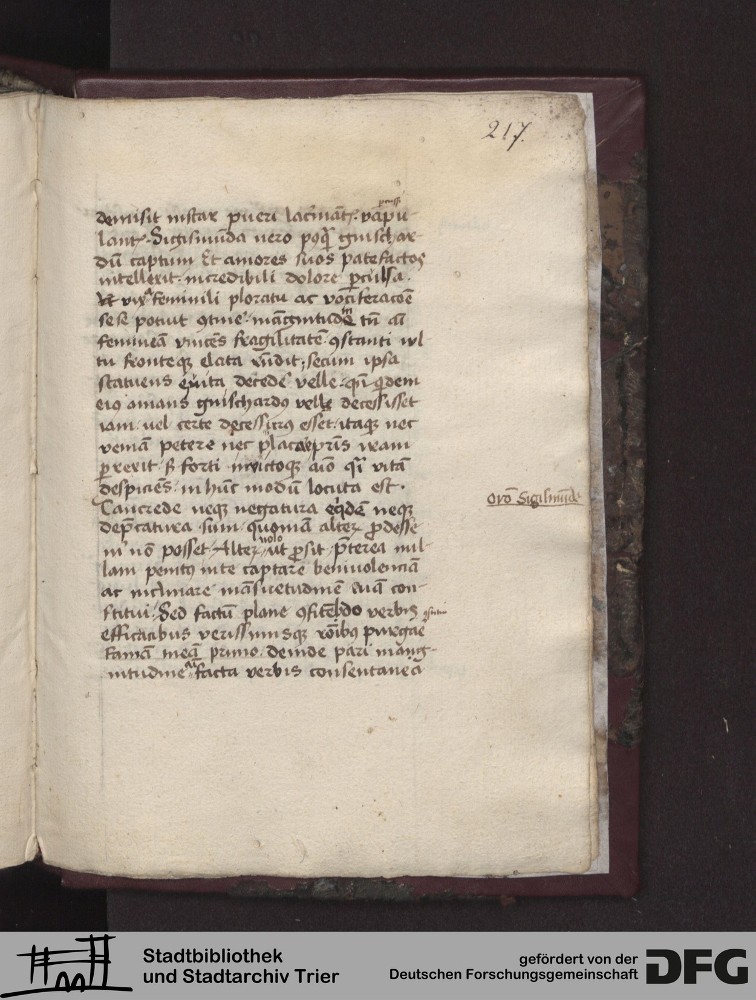 217.
demisit instar pueri lacrimãtꝫ. vãpu-
lantꝫ. Sigismũda vero posqꝫ guischar-
dũ captum Et amores suos patefactos
intellexit. incredibili dolore ꝑculsa.
Et vix a feminili ploratu ac vociferacõe
sese potuit ꝯtine. mãgnitudie tñ aĩ
femineã vincẽs fragilitatẽ ꝯstanti vul
tu fronteqꝫ elata rñdit. secum ipsa
statuens e vita decede velle. qñ qdem
eiꝰ amans guischardꝰ velle decessisset
iam. uel certe decessurꝰ esset. itaqꝫ nec
veniã petere nec placare pr̃is iram
ꝑrexit. sꝫ forti invictoqꝫ aĩo qͣi vitã
despiciẽs. in hũc modũ locuta est.
Tancrede neqꝫ negatura eqdẽ neqꝫ
dep̃catura sum. quoniã alteꝝ ꝓdesse
m̃ nõ posset. Alteꝝ nolo ut ꝓsit. p̃terea nul
lam penitꝰ in te captare benivolenciã
ac inclinare mãsuetudinẽ tuã con-
stitui. Sed factũ plane ꝯfitẽdo verbis
efficacibus verissimisqꝫ rõibꝰ purgare
famã meã primo. deinde pari mang-
nitudine aĩ facta verbis consentanea
Orõ Sigismũde
Stadtbibliothek
und Stadtarchiv Trier
gefördert von der
Deutschen Forschungsgemeinschaft
DFG